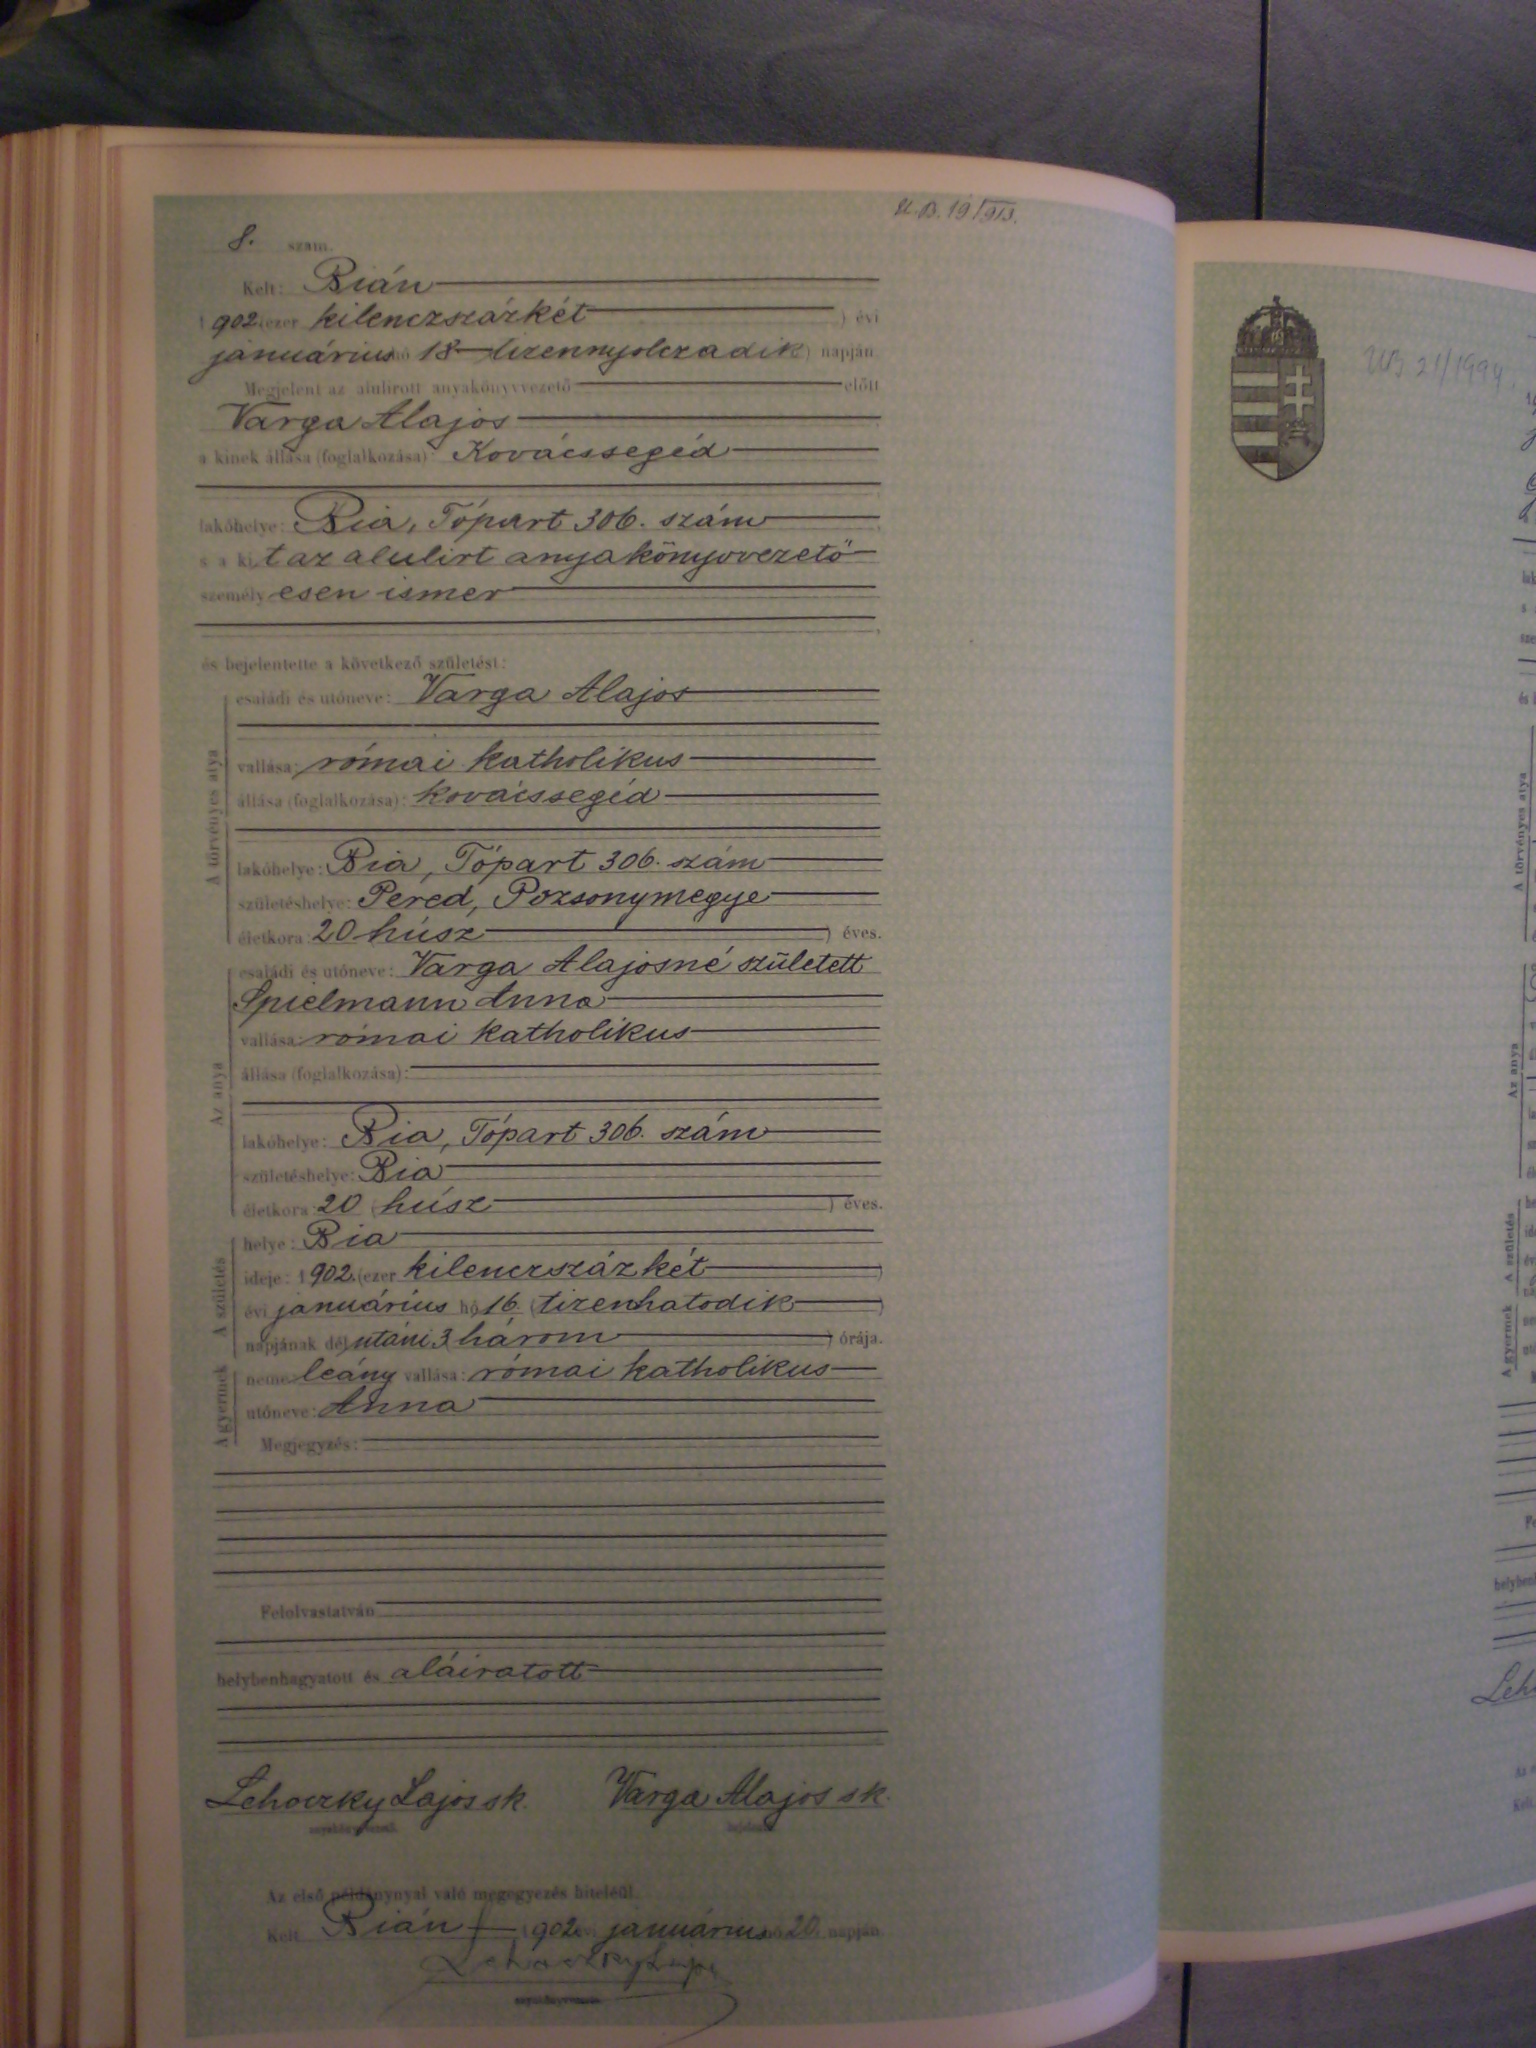 U.B. 19/913.
8. szám.
Kelt: Bián
1902 (ezer kilenczszázkét ) évi
január​ius hó 18 tizennyolczadik) napján.
Megjelent az alulirott anyakönyvvezető előtt
Varga Alajos
a kinek állása (foglalkozása): Kovácssegéd
lakóhelye: Bia, Tópart 306. szám
s a kit az alulirt anyakönyvvezető
személyesen ismer
és bejelentette a következő születést:
A törvényes atya
családi és utóneve: Varga Alajos
vallása: római katholikus
állása (foglalkozása): kovácssegéd
lakóhelye: Bia, Tópart 306. szám
születéshelye: Pered, Pozsonymegye
életkora: 20 húsz ) éves.
Az anya
családi és utóneve: Varga Alajosné született
Spielmann Anna
vallása: római katholikus
állása (foglalkozása):
lakóhelye: Bia, Tópart 306. szám
születéshelye: Bia
életkora: 20 (húsz ) éves.
A születés
helye: Bia
ideje: 1902. (ezer kilenczszázkét )
évi január​ius hó 16. (tizenhatodik )
napjának délutáni 3 (három ) órája.
A gyermek
neme: leány vallása: római katholikus
utóneve: Anna
Megjegyzés:
Felolvastatván
helybenhagyatott és aláiratott
Lehoczky Lajos sk. Varga Alajos sk.
anyakönyvvezető. bejelentő.
Az első példánynyal való megegyezés hiteléül.
Kelt Bián 1902 évi január​ius hó 20. napján
Lehoczky Lajos
anyakönyvvezető.
UB 21/1994.
A törvényes atya
Az anya
A születés
A gyermek